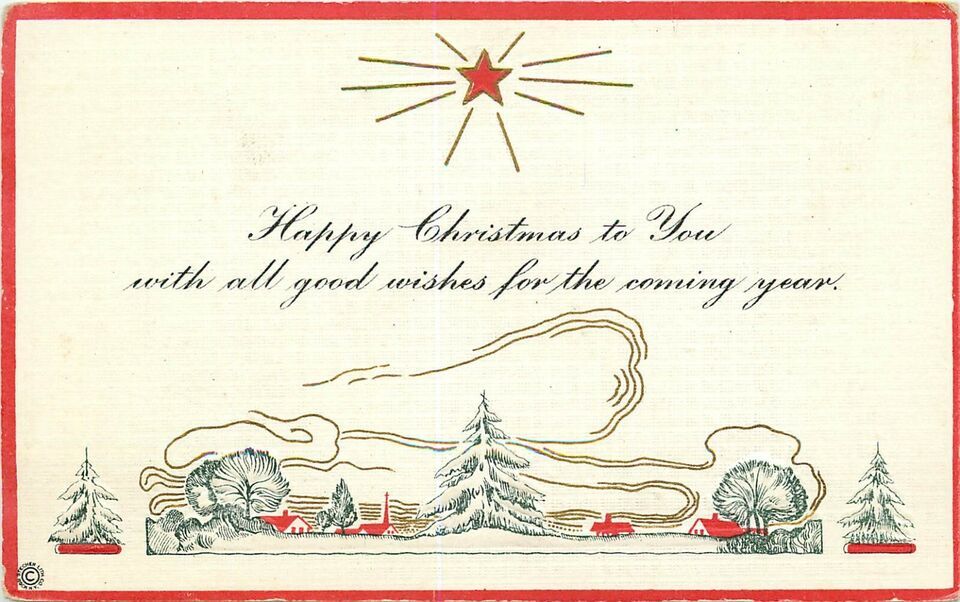 Happy Christmas to You
with all good wishes for the coming year.
©